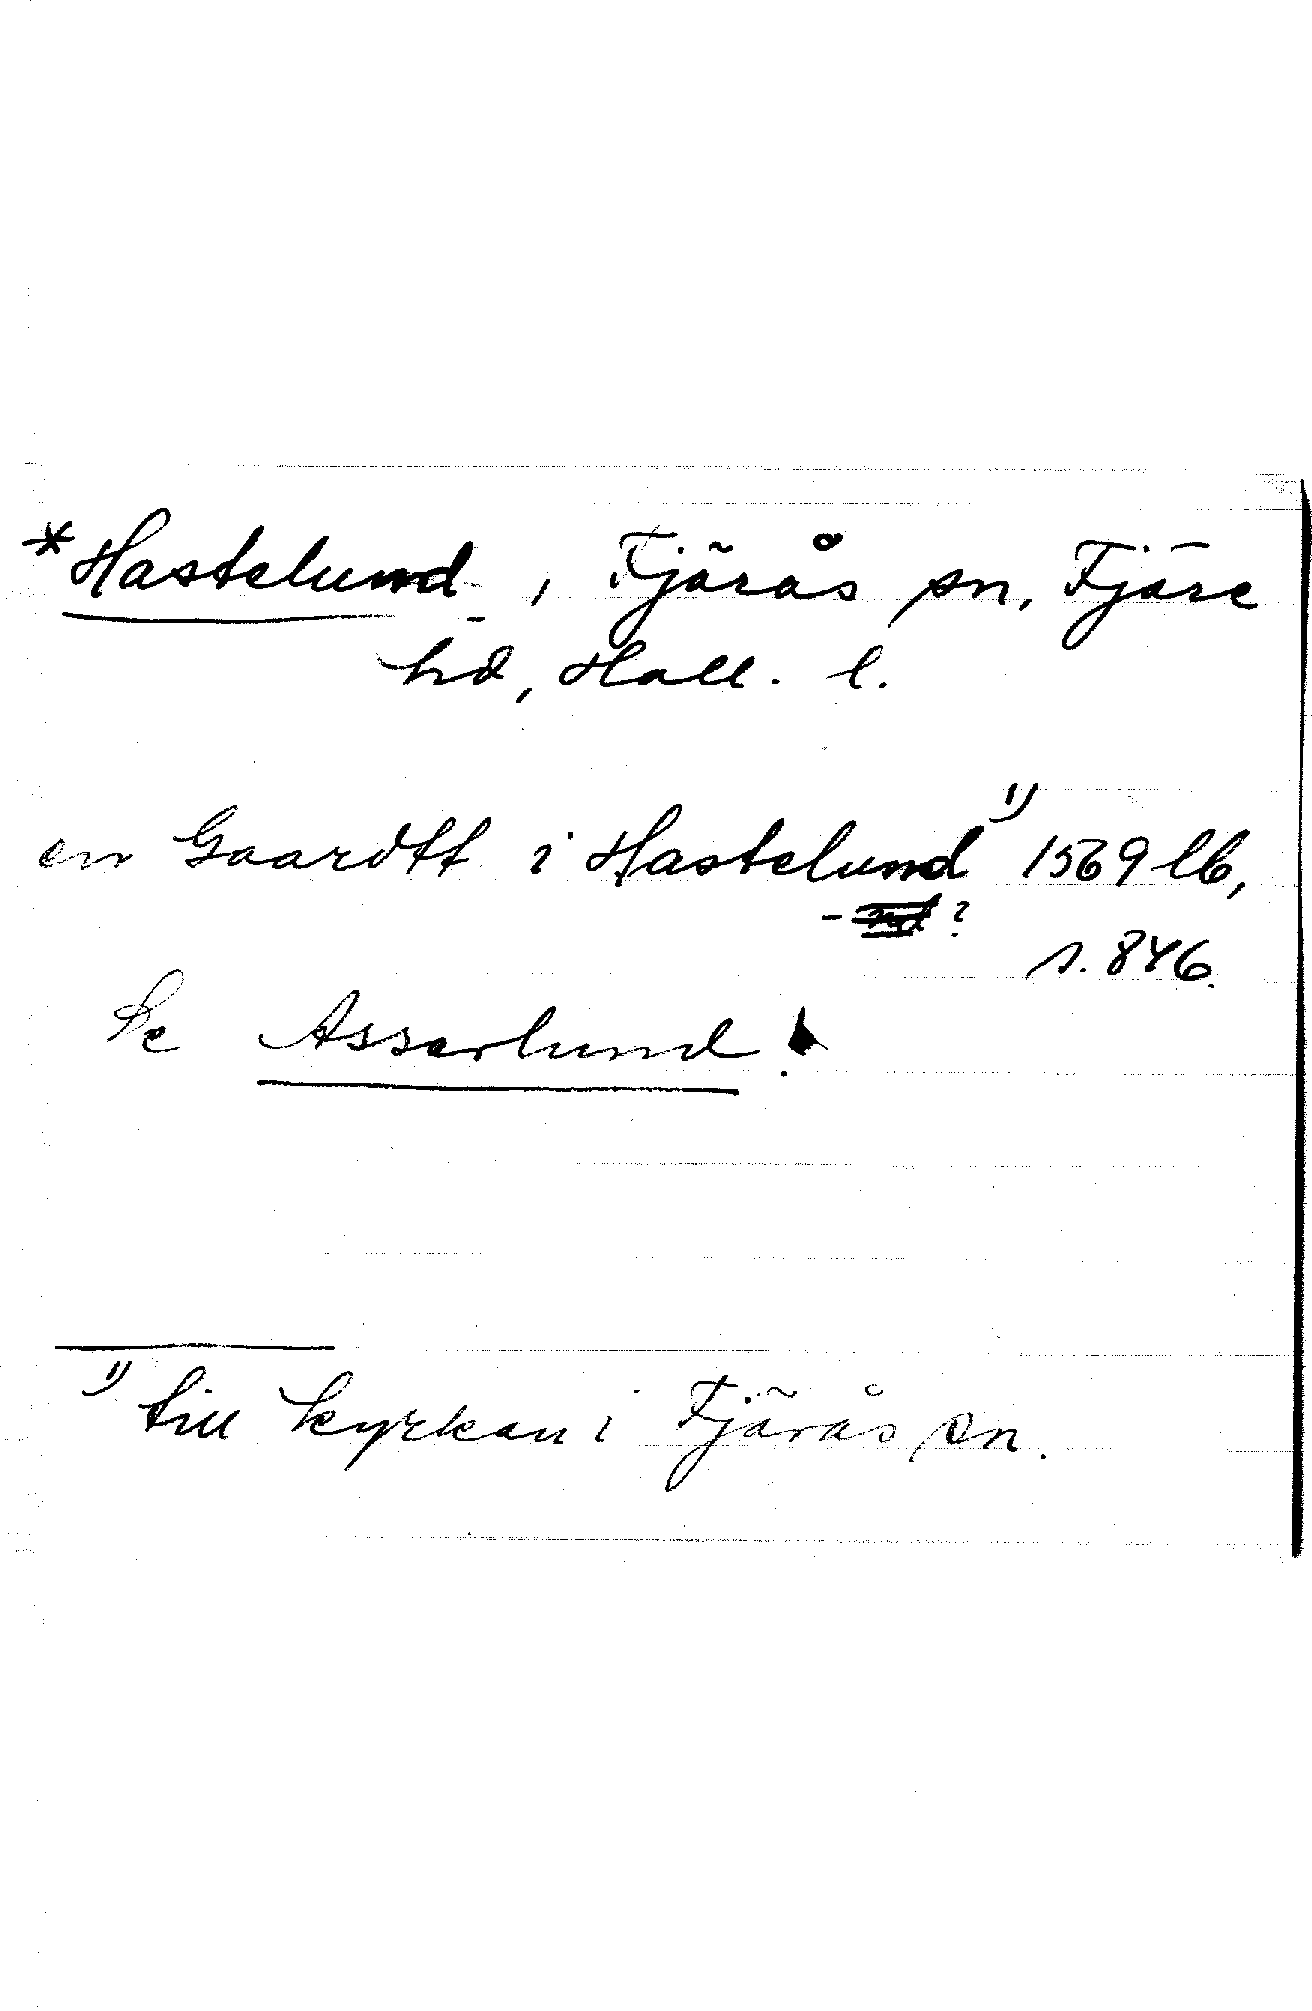 *Hastelund, Fjärås sn, Fjäre
hd, Hall. l.
en Gaardtt i Hastelund 1) 1569 lb,
- nd ?
s. 846.
Se Assarlund!
1) till kyrkan i Fjärås sn.